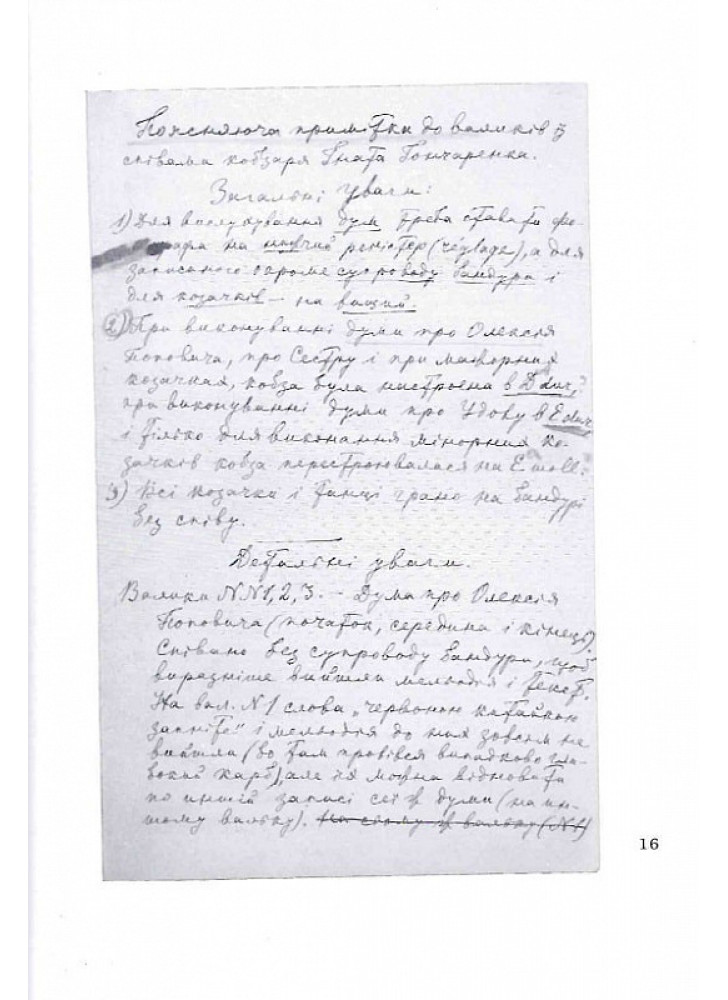 Поясняюча примітка до валиків із
співами кобзаря Гната Гончаренка.
Загальні уваги:
1) Для вислухування дум треба ставити фо-
нографа на низчий регістер ( ), а для
записаного окроме супроводу бандури і
для козачків – на вищий.
2) При виконуванні думи про Олексія
Поповича, про Сестру і при мажорних
козачках, кобза була настроєна в D dur,
при виконуванні думи про Удову в E dur
і тілько для виконання мінорних ко-
зачків кобза перестроювалася на E moll.
3) Всі козачки і танці грано на бандурі
без співу.
Детальні уваги.
Валики NN 1, 2, 3. – Дума про Олексія
Поповича (початок, середина і кінець).
Співано без супроводу бандури, щоб
виразніше вийшли мелодія і текст.
На вал. N 1 слова „червоною китайкою
запніте" і мелодія до них зовсім не
вийшла (бо там провівся випадково гли-
бокий карб), але їх можна відновити
по иншій записі сеї ж думи (на ин-
шому вальку). На сьому ж вальку (N 1)
16